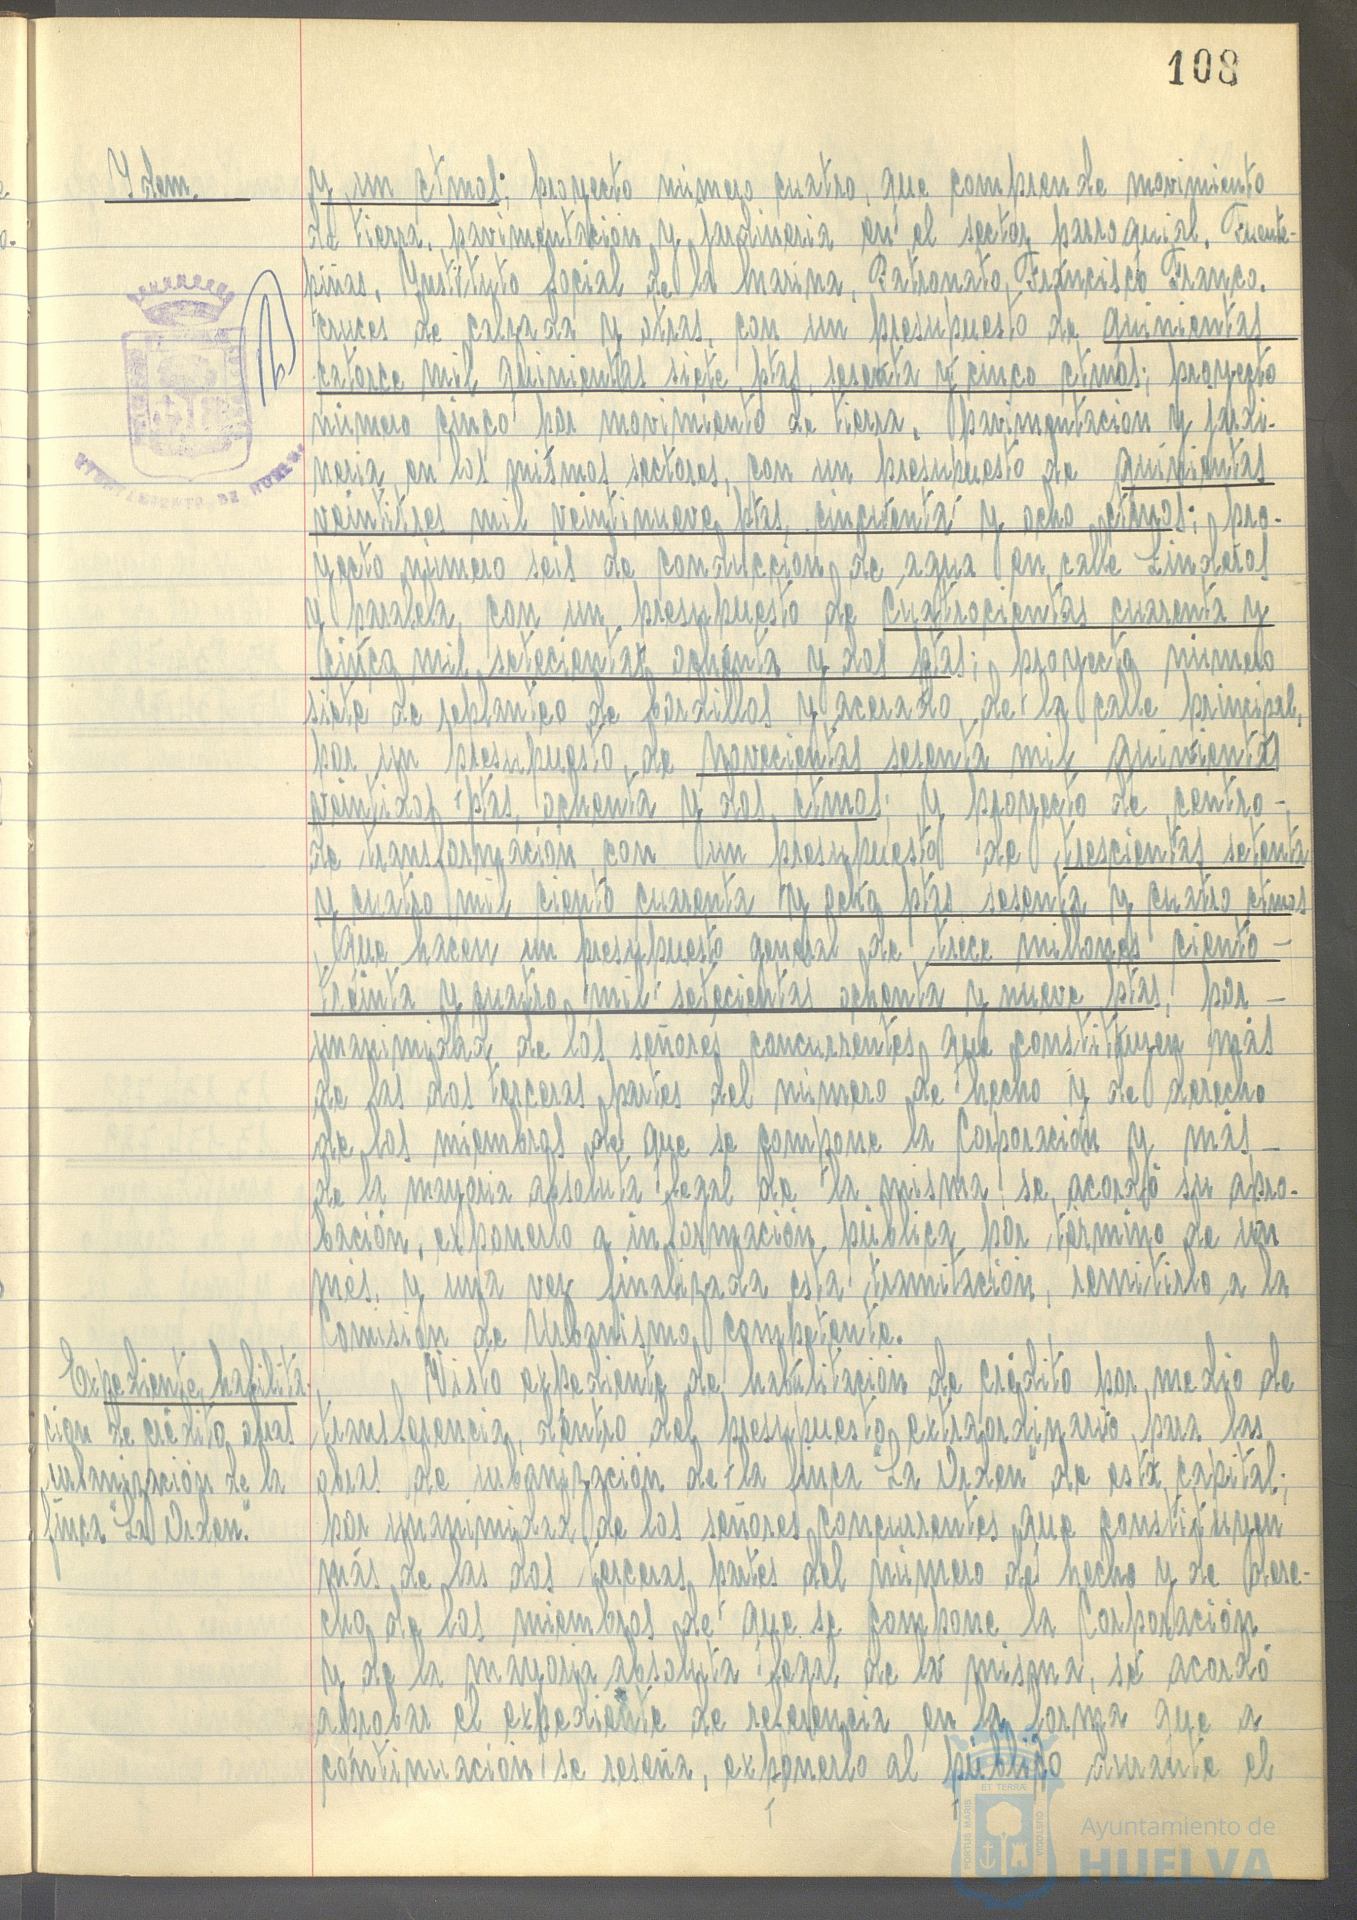 108
Ydem.
y un ctmos; proyecto número cuatro, que comprende movimiento
de tierra, pavimentación y jardineria en el sector parroquial, Fuente-
piñas, Ynstituto Social de la Marina, Patronato Francisco Franco,
cruces de calzada y otras, con un presupuesto de quinientas
catorce mil quinientas siete ptas, sesenta y cinco ctmos; proyecto
número cinco por movimiento de tierra, pavimentacion y jardi-
neria, en los mismos sectores, con un presupuesto de quinientas
veintitres mil veintinueve ptas, cincuenta y ocho ctmos; pro-
yecto número seis de conduccion de agua en calle Linderos
y paralela, con un presupuesto de cuatrocientas cuarenta y
cinco mil setecientas ochenta y dos ptas; proyecto número
siete de replanteo de bordillos y acerado, de la calle principal,
por un presupuesto de novecientas sesenta mil quinientas
veintidos ptas, ochenta y dos ctmos; y proyecto de centro-
de transformación con un presupuesto de trescientas setenta
y cuatro mil ciento cuarenta y ocho ptas sesenta y cuatro ctmos
que hacen un presupuesto general de trece millones ciento-
treinta y cuatro mil setecientas ochenta y nueve ptas, por-
unanimidad de los señores concurrentes que constituyen más
de las dos terceras partes del número de hecho y de derecho
de los miembros de que se compone la Corporación y más-
de la mayoria absoluta legal de la misma, se acordó su apro-
bación, exponerlo a información pública por término de un
més, y una vez finalizada esta tramitación, remitirlo a la
Comisión de Urbanismo competente.
Expediente habilita-
ción de crédito obras
urbanización de la
finca "La Orden".
Visto expediente de habilitación de crédito por medio de
transferencia, dentro del presupuesto extraordinario para las
obras de urbanización de la finca "La Orden" de esta capital;
por unanimidad de los señores concurrentes que constituyen
más de las dos terceras partes del número de hecho y de dere-
cho de los miembros de que se compone la Corporación
y de la mayoria absoluta legal de la misma, se acordó
aprobar el expediente de referencia en la forma que a
continuación se reseña, exponerlo al público durante el
AYUNTAMIENTO DE HUELVA
PORTUS MARIS ET TERRAE CUSTODIA
Ayuntamiento de
HUELVA